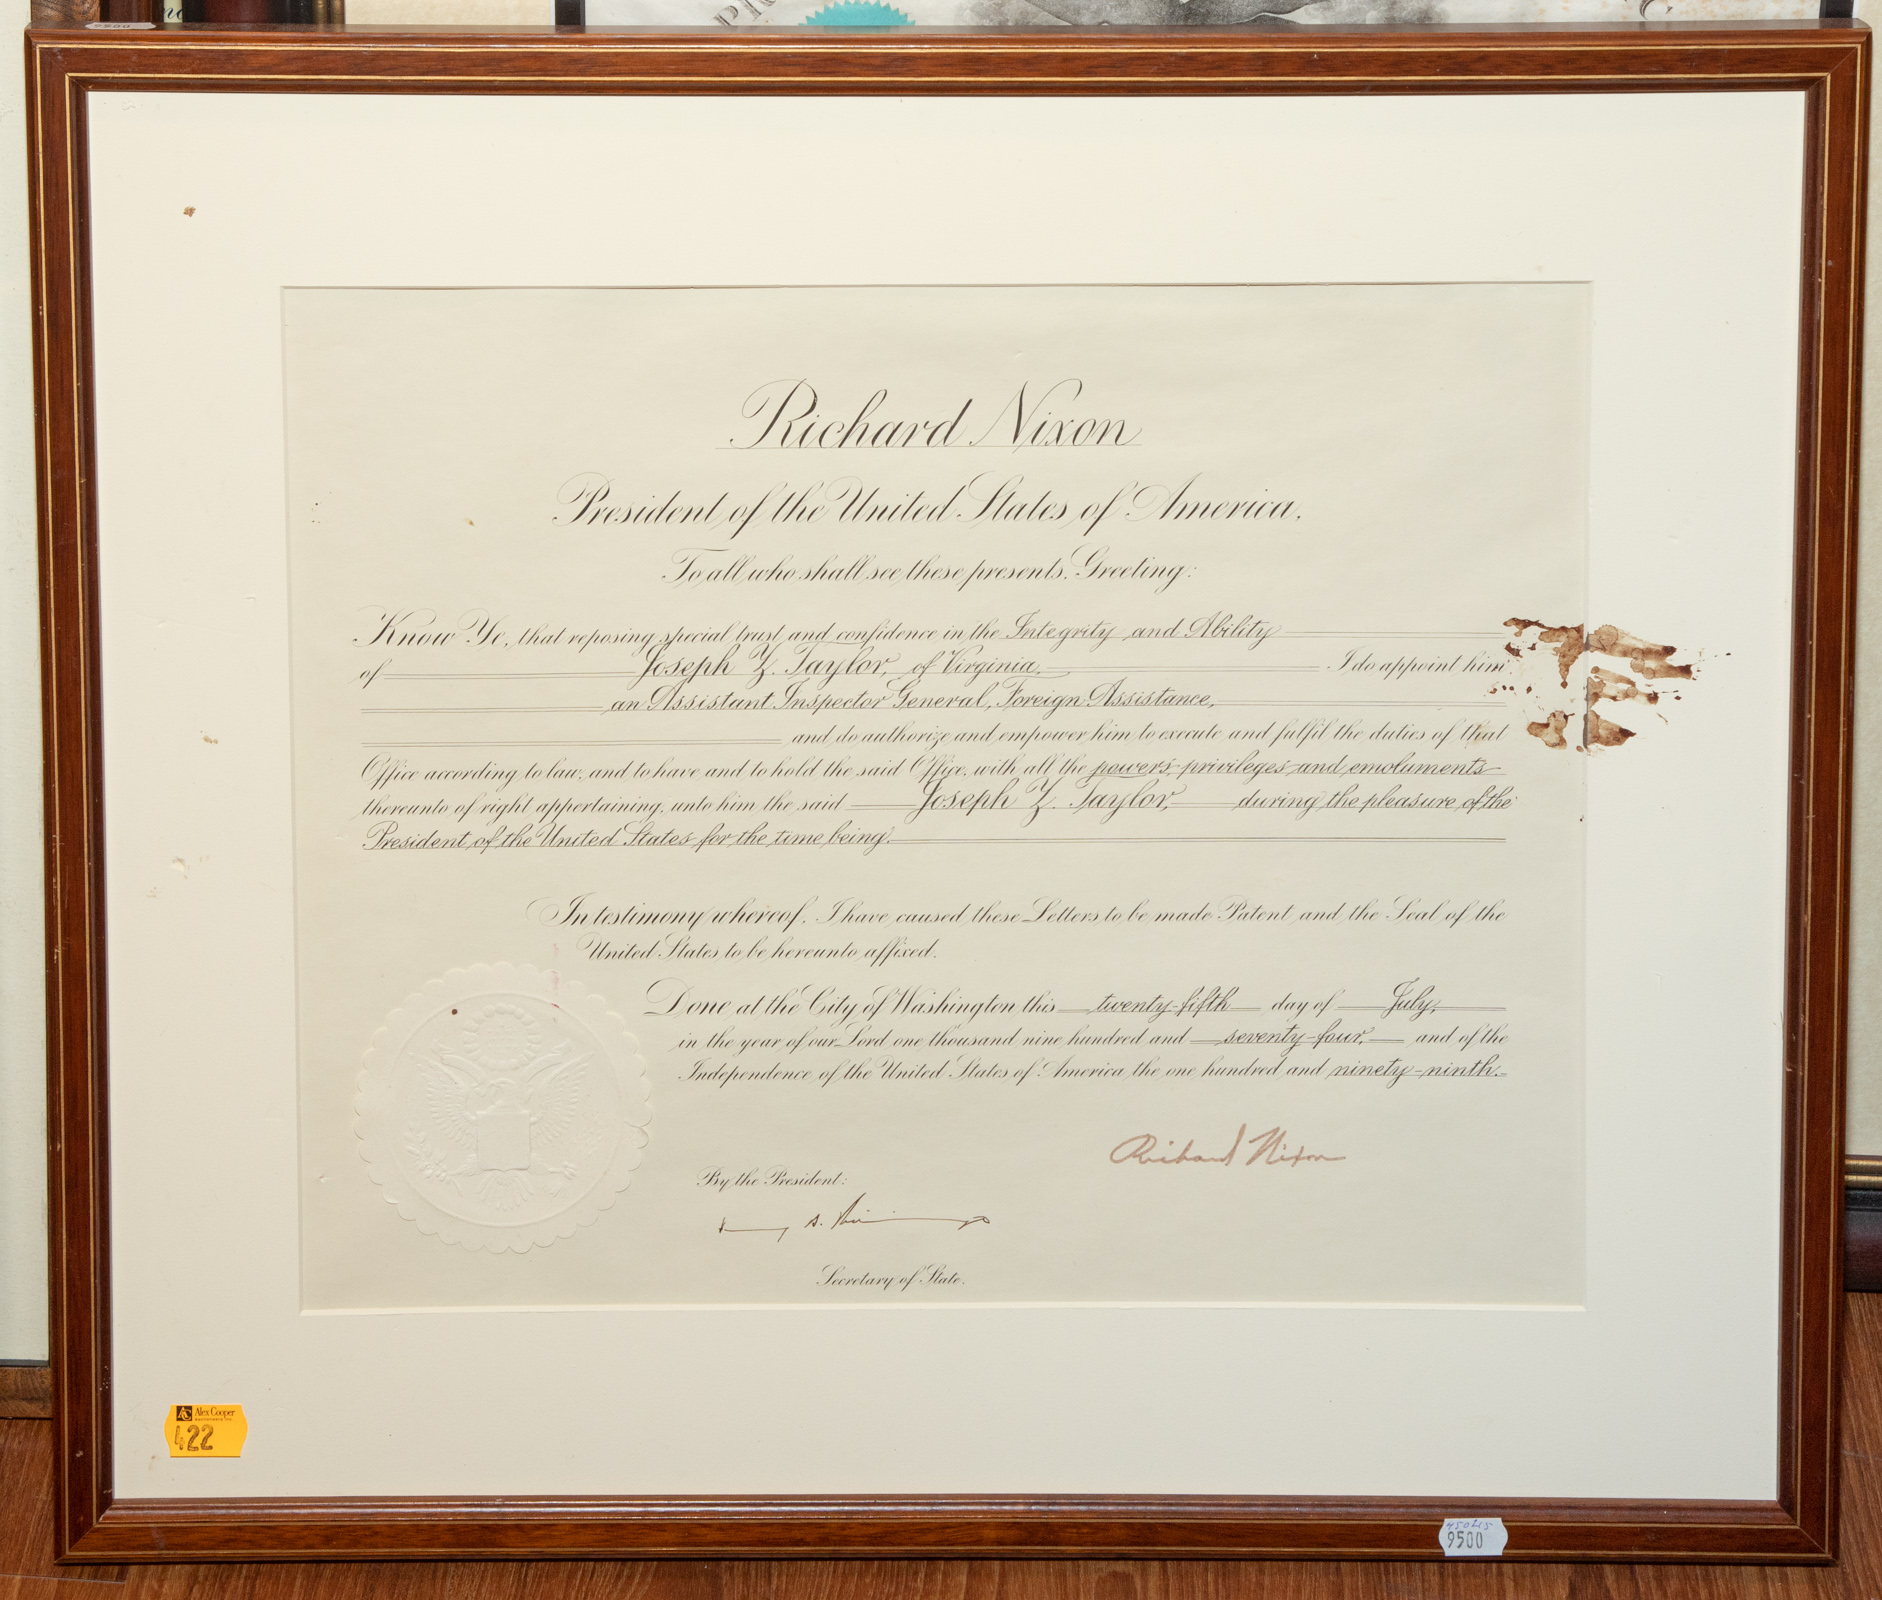 9500
Richard Nixon
President of the United States of America,
To all who shall see these presents, Greeting:
Know Ye, that reposing special trust and confidence in the Integrity and Ability
of Joseph Z. Taylor, of Virginia, I do appoint him
an Assistant Inspector General, Foreign Assistance,
and do authorize and empower him to execute and fulfil the duties of that
Office according to law, and to have and to hold the said Office, with all the powers, privileges and emoluments
thereunto of right appertaining, unto him the said Joseph Z. Taylor, during the pleasure of the
President of the United States for the time being.
In testimony whereof, I have caused these Letters to be made Patent and the Seal of the
United States to be hereunto affixed.
Done at the City of Washington this twenty-fifth day of July,
in the year of our Lord one thousand nine hundred and seventy-four, and of the
Independence of the United States of America the one hundred and ninety-ninth.
Richard Nixon
By the President:
Secretary of State.
AC Alex Cooper
422
9500